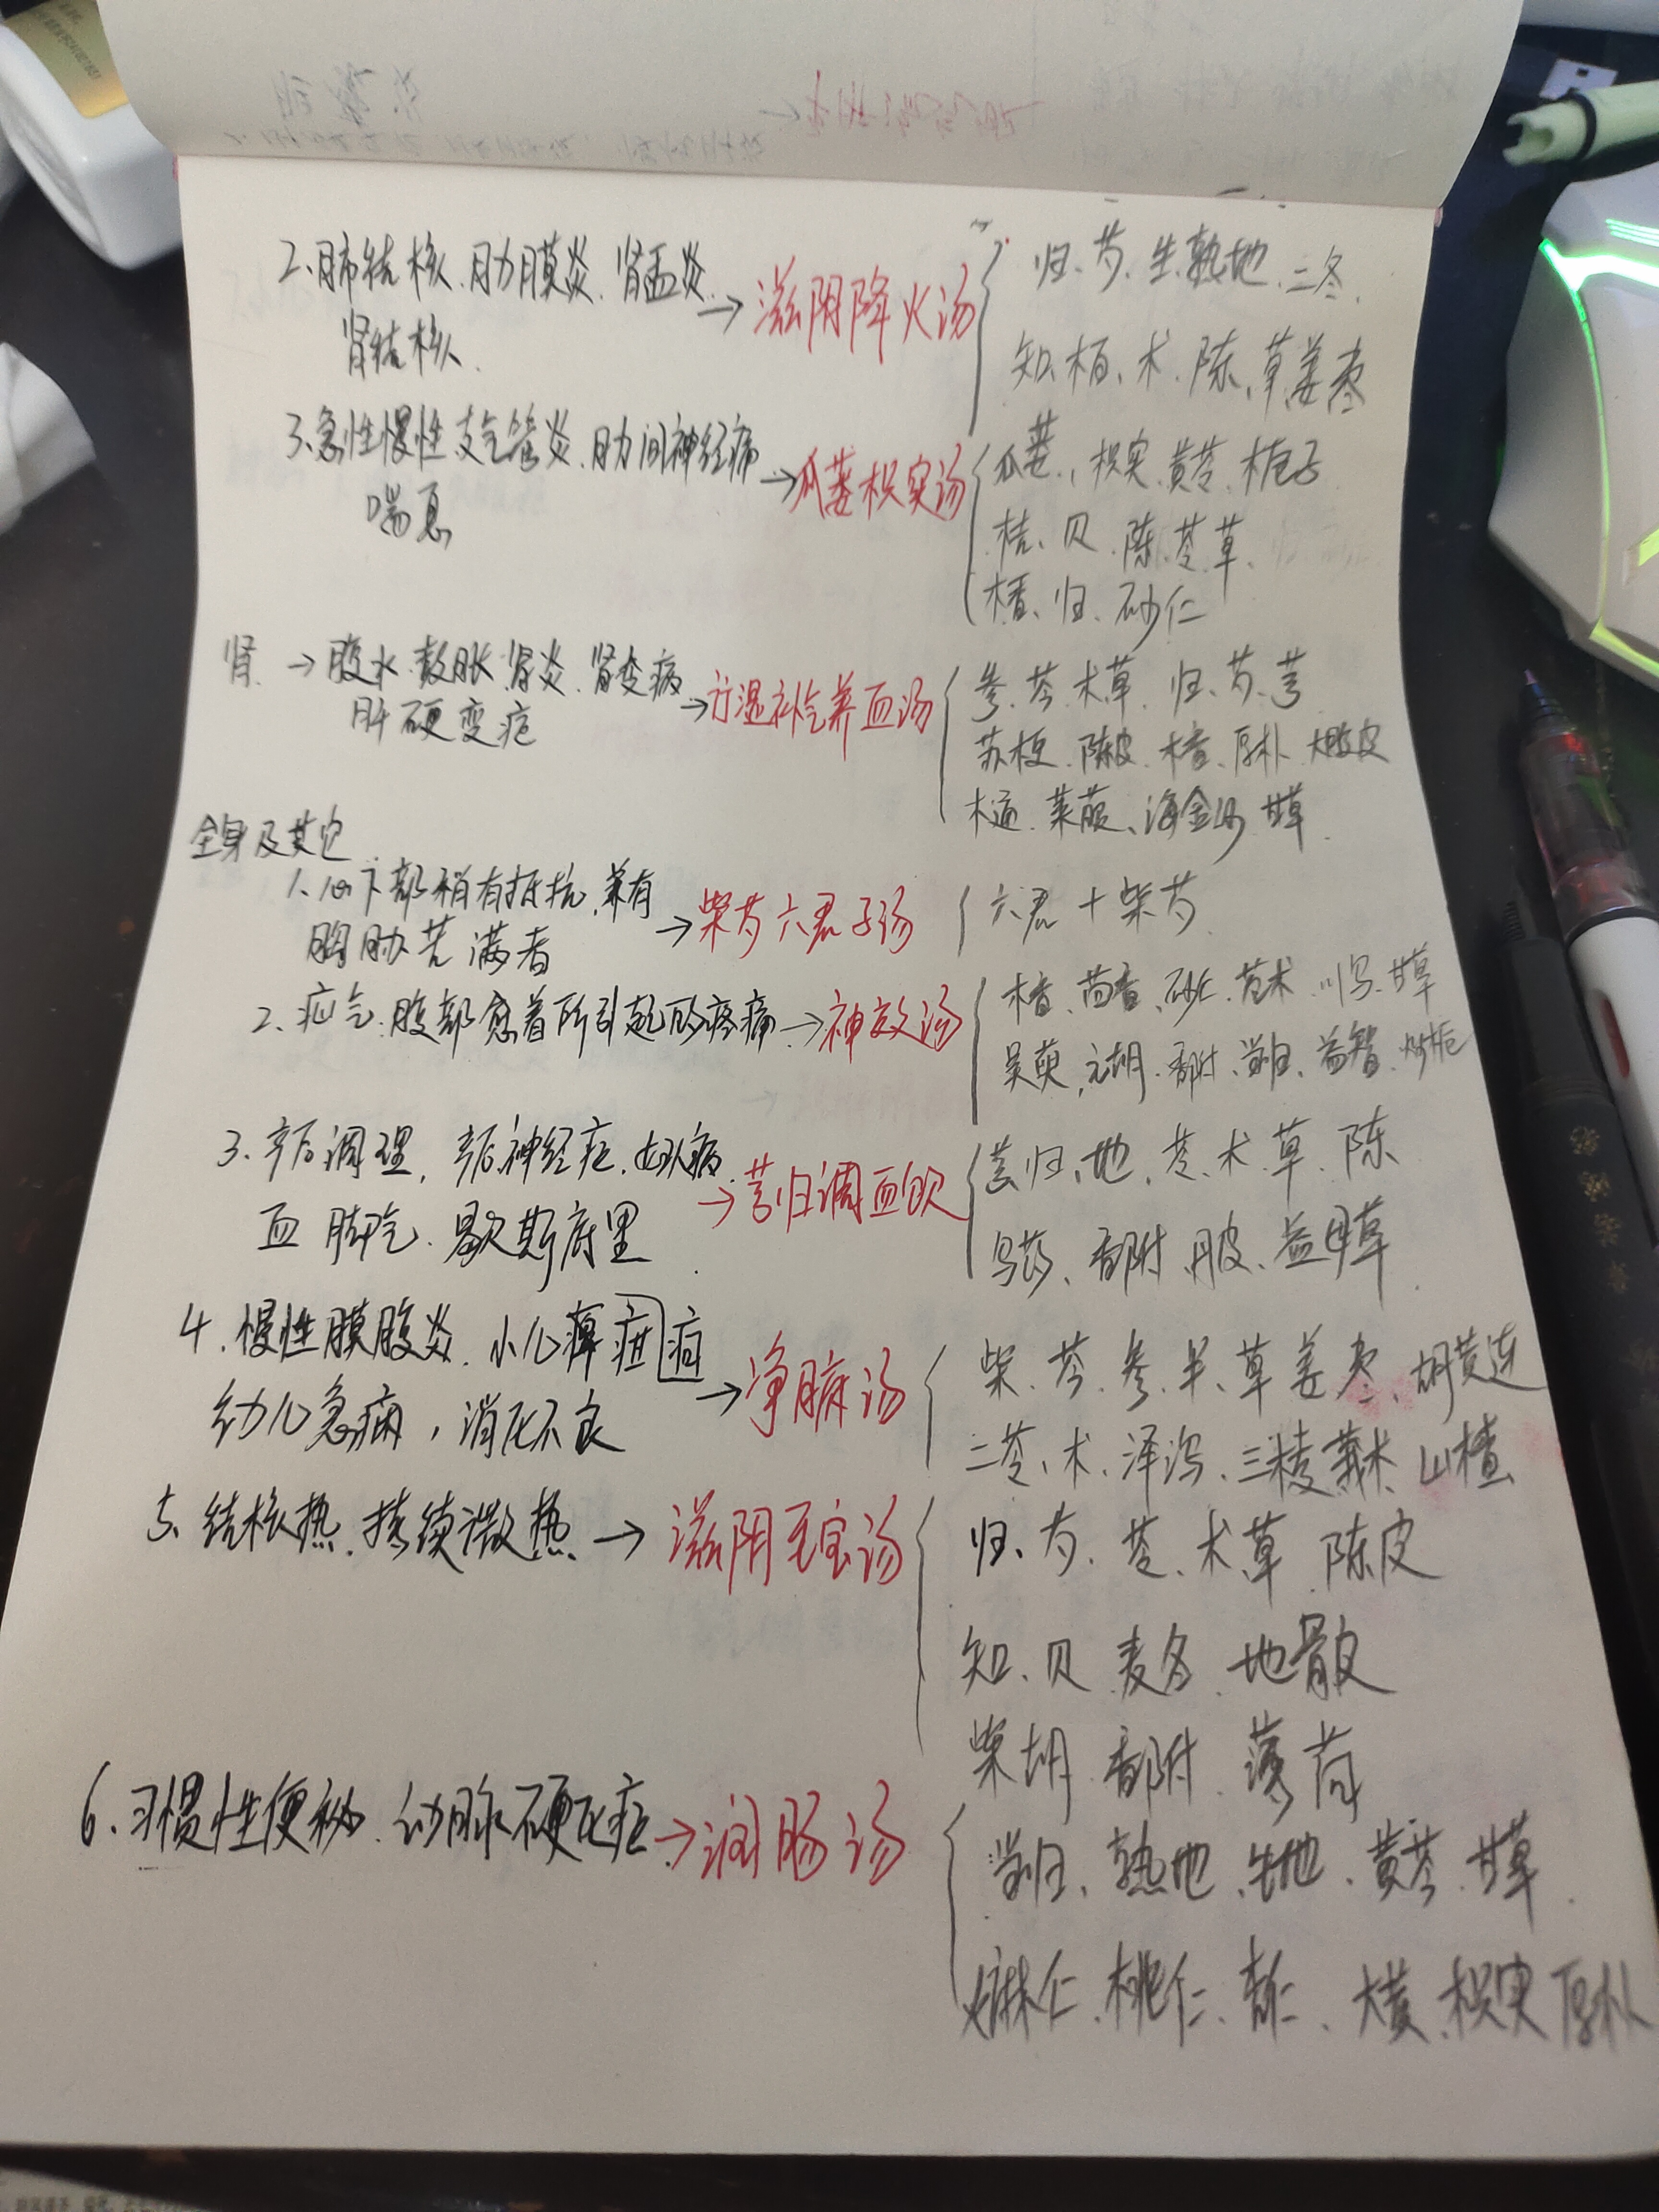 2、肺结核、肋膜炎、肾盂炎、
肾结核.
→滋阴降火汤
归、芍、生熟地、二冬、
知、柏、术、陈、草、姜枣
3、急性慢性支气管炎、肋间神经痛
喘息
→瓜蒌枳实汤
瓜蒌、枳实、黄芩、栀子
桔、贝、陈、苓、草、
木香、归、砂仁
肾 → 腹水 鼓胀 肾炎、肾变病
肝硬变症
→行湿补气养血汤
参、苓、术草 归、芍、芎
苏梗、陈皮、木香、厚朴、大腹皮
木通、莱菔、海金沙 甘草.
全身及其它
1、心下部稍有抵抗,兼有
胸肋苦满者
→柴芍六君子汤
六君+柴芍
2、疝气、腹部愈着所引起的疼痛→神效汤
木香、茴香、砂仁、苍术、川乌、甘草
吴萸,元胡、香附、当归、益智、炒栀
3、产后调理,产后神经症、妇人病
血脚气、歇斯底里.
→芎归调血饮
芎归、地、苓、术、草、陈
乌药、香附、丹皮、益母草
4. 慢性膜腹炎、小儿痹疳 疳
幼儿急痫,消化不良
→净腑汤
柴、芩、参、半、草、姜枣、胡黄连
二苓、术、泽泻、三棱莪术、山楂
5、结核热、持续微热→滋阴至宝汤
归、芍、苓、术、草 陈皮
知、贝 麦冬 地骨皮
柴胡 香附 薄荷
6、习惯性便秘、动脉硬化症→润肠汤
当归、熟地、生地、黄芩、甘草
麻仁、桃仁、杏仁、大黄、枳实 厚朴